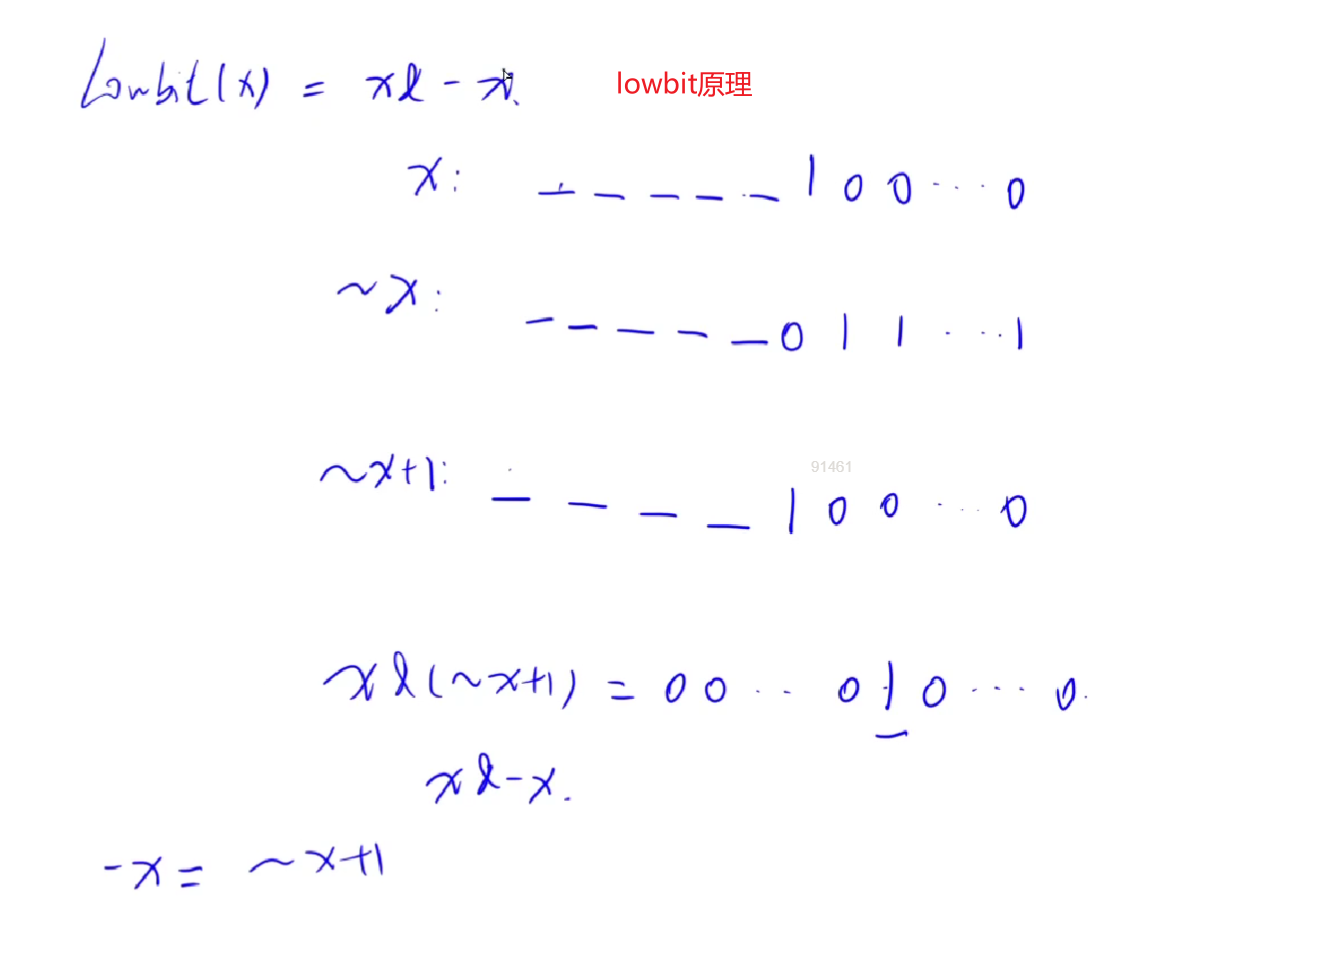 Lowbit(x) = x & -x. lowbit原理
x: _ _ _ _ _ 1 0 0 ... 0
~x: _ _ _ _ _ 0 1 1 ... 1
91461
~x+1: _ _ _ _ 1 0 0 ... 0
x & (~x+1) = 0 0 .. 0 1 0 ... 0.
x & -x.
-x = ~x+1